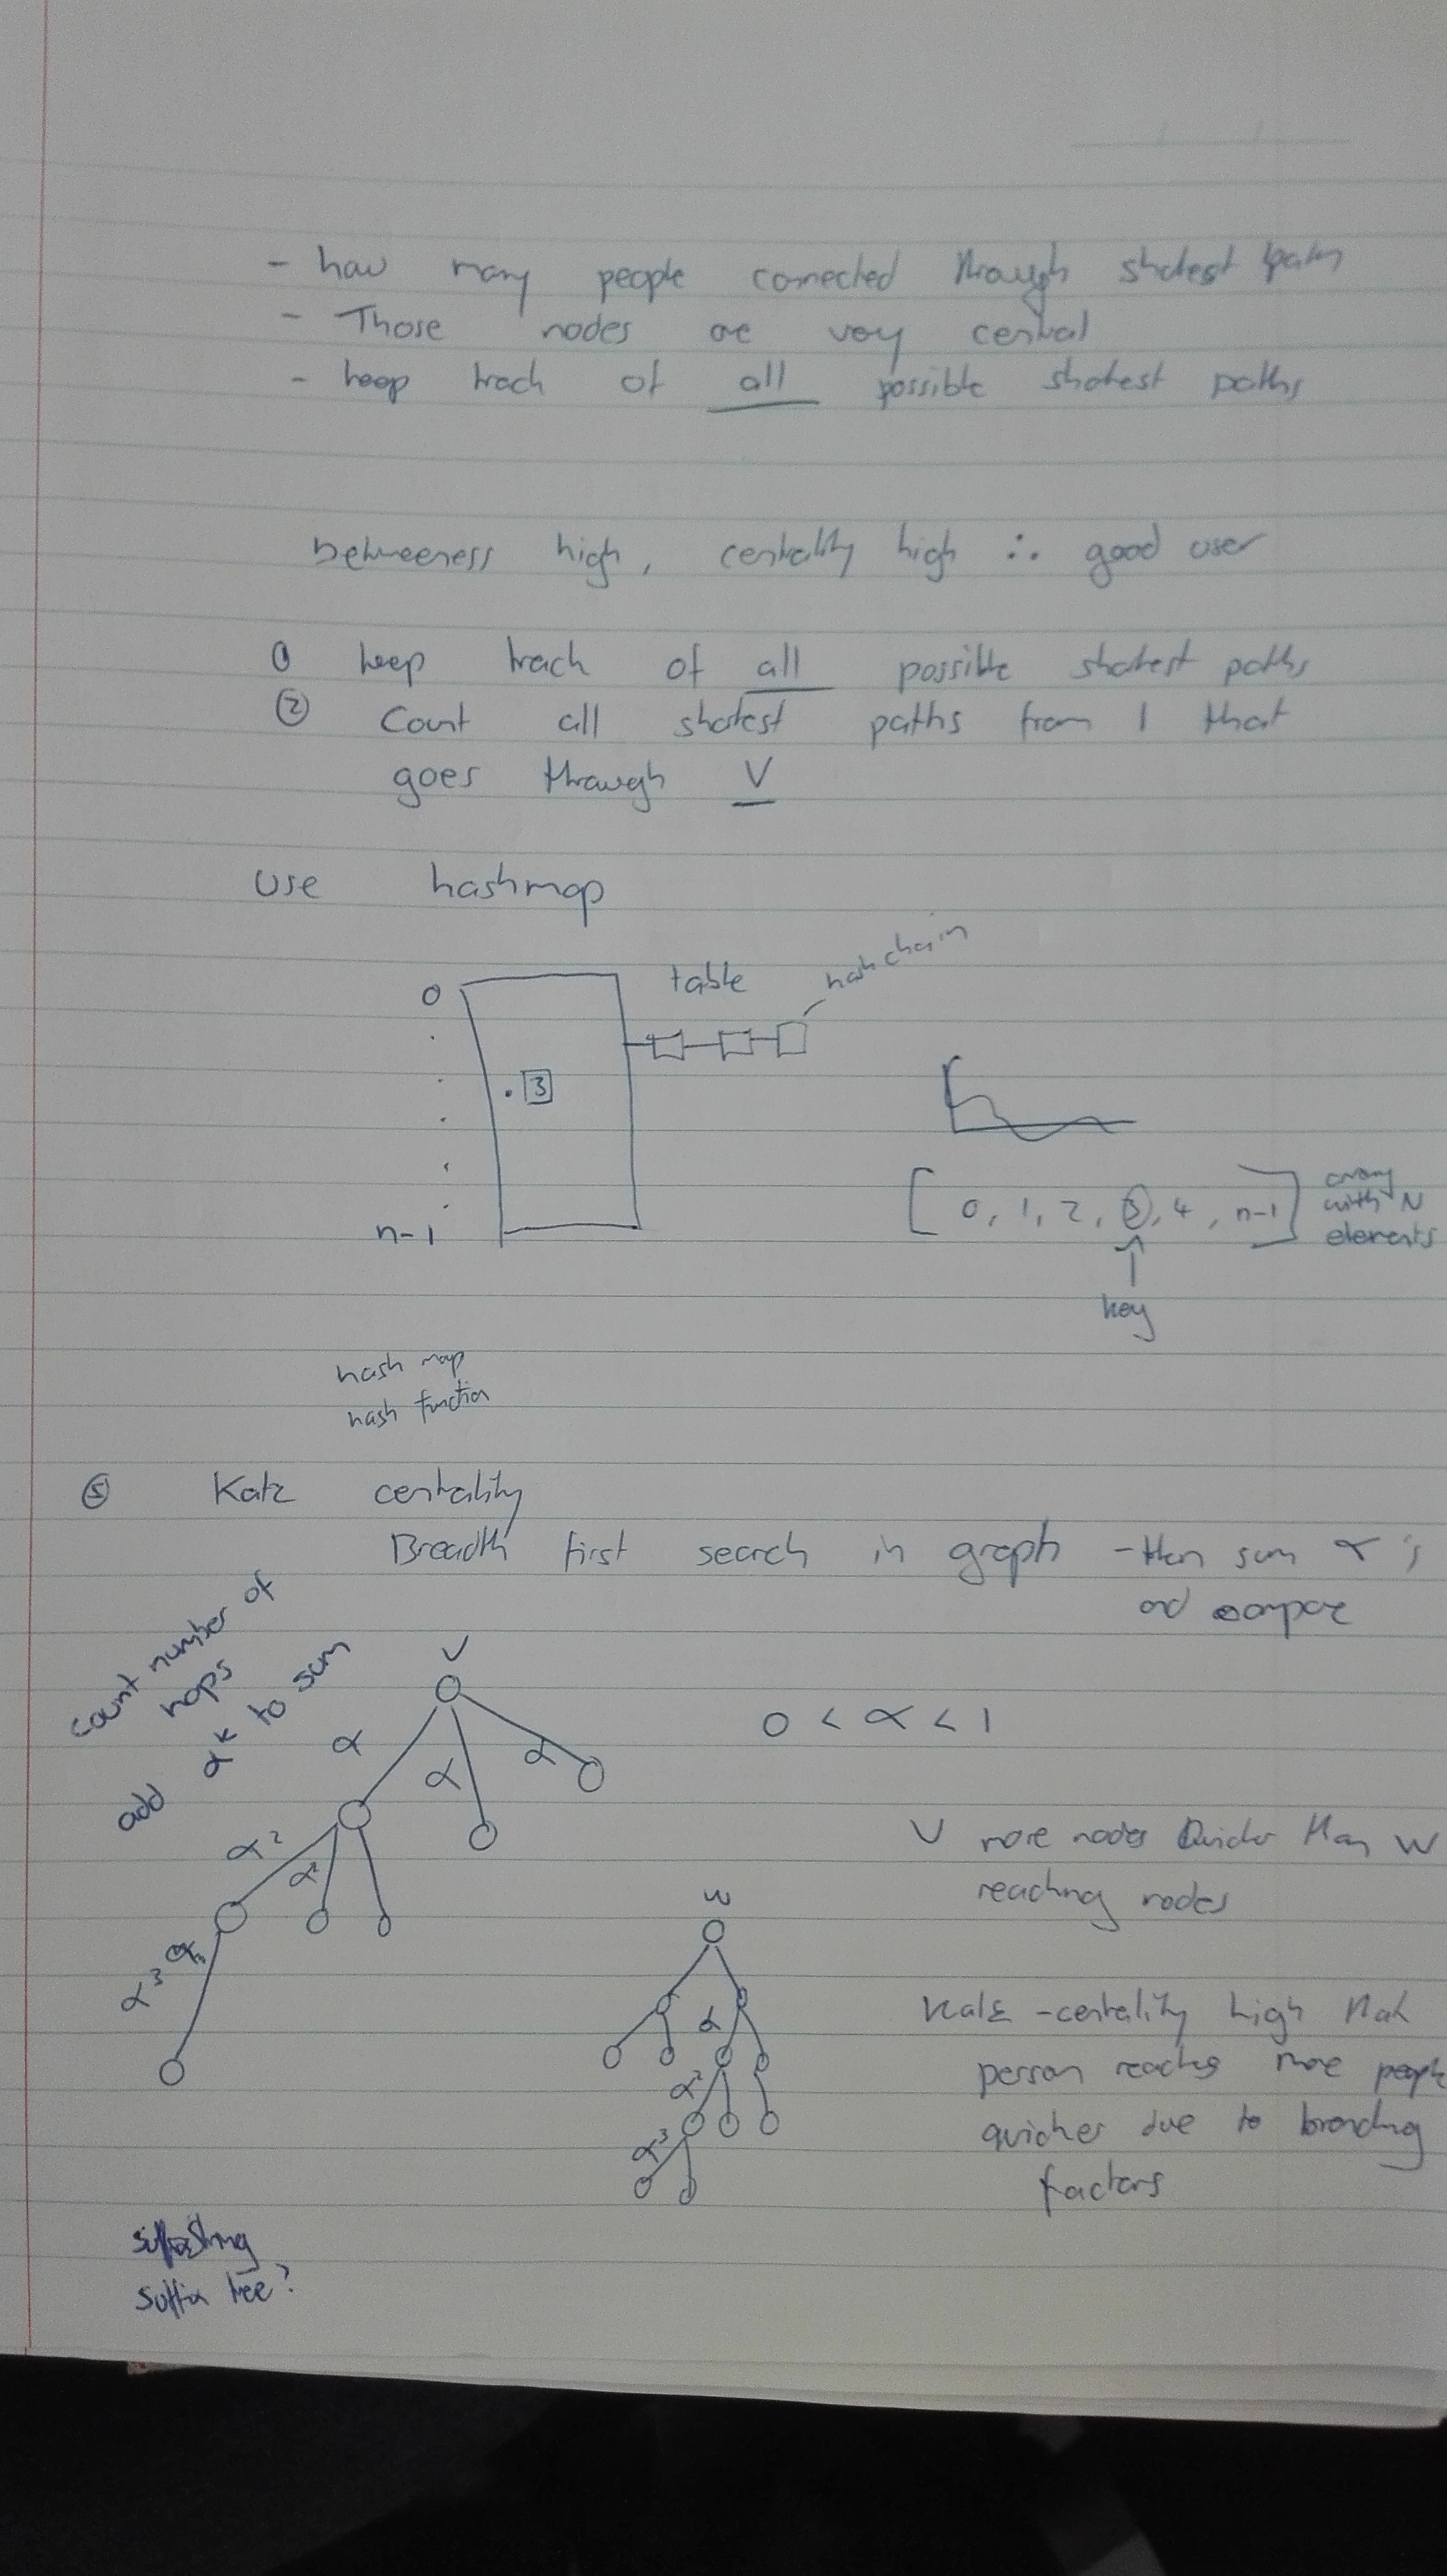 - how many people connected through shortest path
- Those nodes are very central
- keep track of all possible shortest paths
betweeness high, centrality high ∴ good user
① keep track of all possible shortest paths
② Count all shortest paths from 1 that
goes through V
use hashmap
0
table
hash chain
3
n-1
[0, 1, 2, 3, 4, n-1]
array
with N
elements
key
hash map
hash function
⑤ Katz centrality
Breadth first search in graph - then sum α's
and compare
count number of
hops
add α^k to sum
V
α
α
α
0 < α < 1
α²
α²
α³
V more nodes Quicker than W
reaching nodes
W
α
α²
α³
Katz - centrality high that
person reaches more people
quicker due to branching
factors
suffix tree?